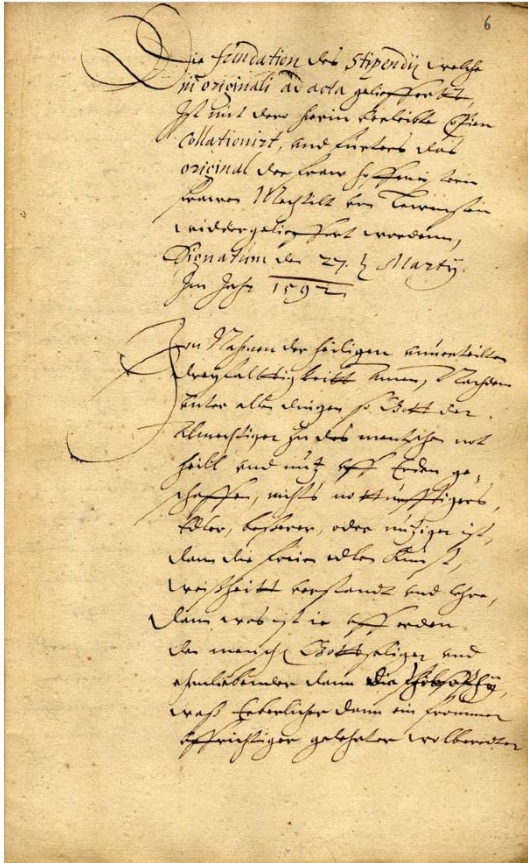 6
Die fundation des Stipendij welche
in originali ad acta geliefferett,
Ist mit dero hierin verleibte Copien
Collationirt, und fürters das
original der Frawen
frawen Mechtilt von
widdergelieffert wordenn,
Signatum den 27. Martij
Im Jahr 1592
Im Nahmen der heiligen unuerteilten
dreyfalttigkeitt Amen, Nachdem
unter allen dingen so Gott der
Almechtiger zu des menschen not
heill und nutz uff Erden ge,
schaffen, nichts nottürfftigers,
Edler, besserer, oder nutziger ist,
dann die freien edlen Kunst,
weißheitt verstandt und lehre,
dann was ist ie uff erden
der mensch Gottseliger und
dann die
waß dann ein frommer
uffrichtiger gelehrter wolberedter